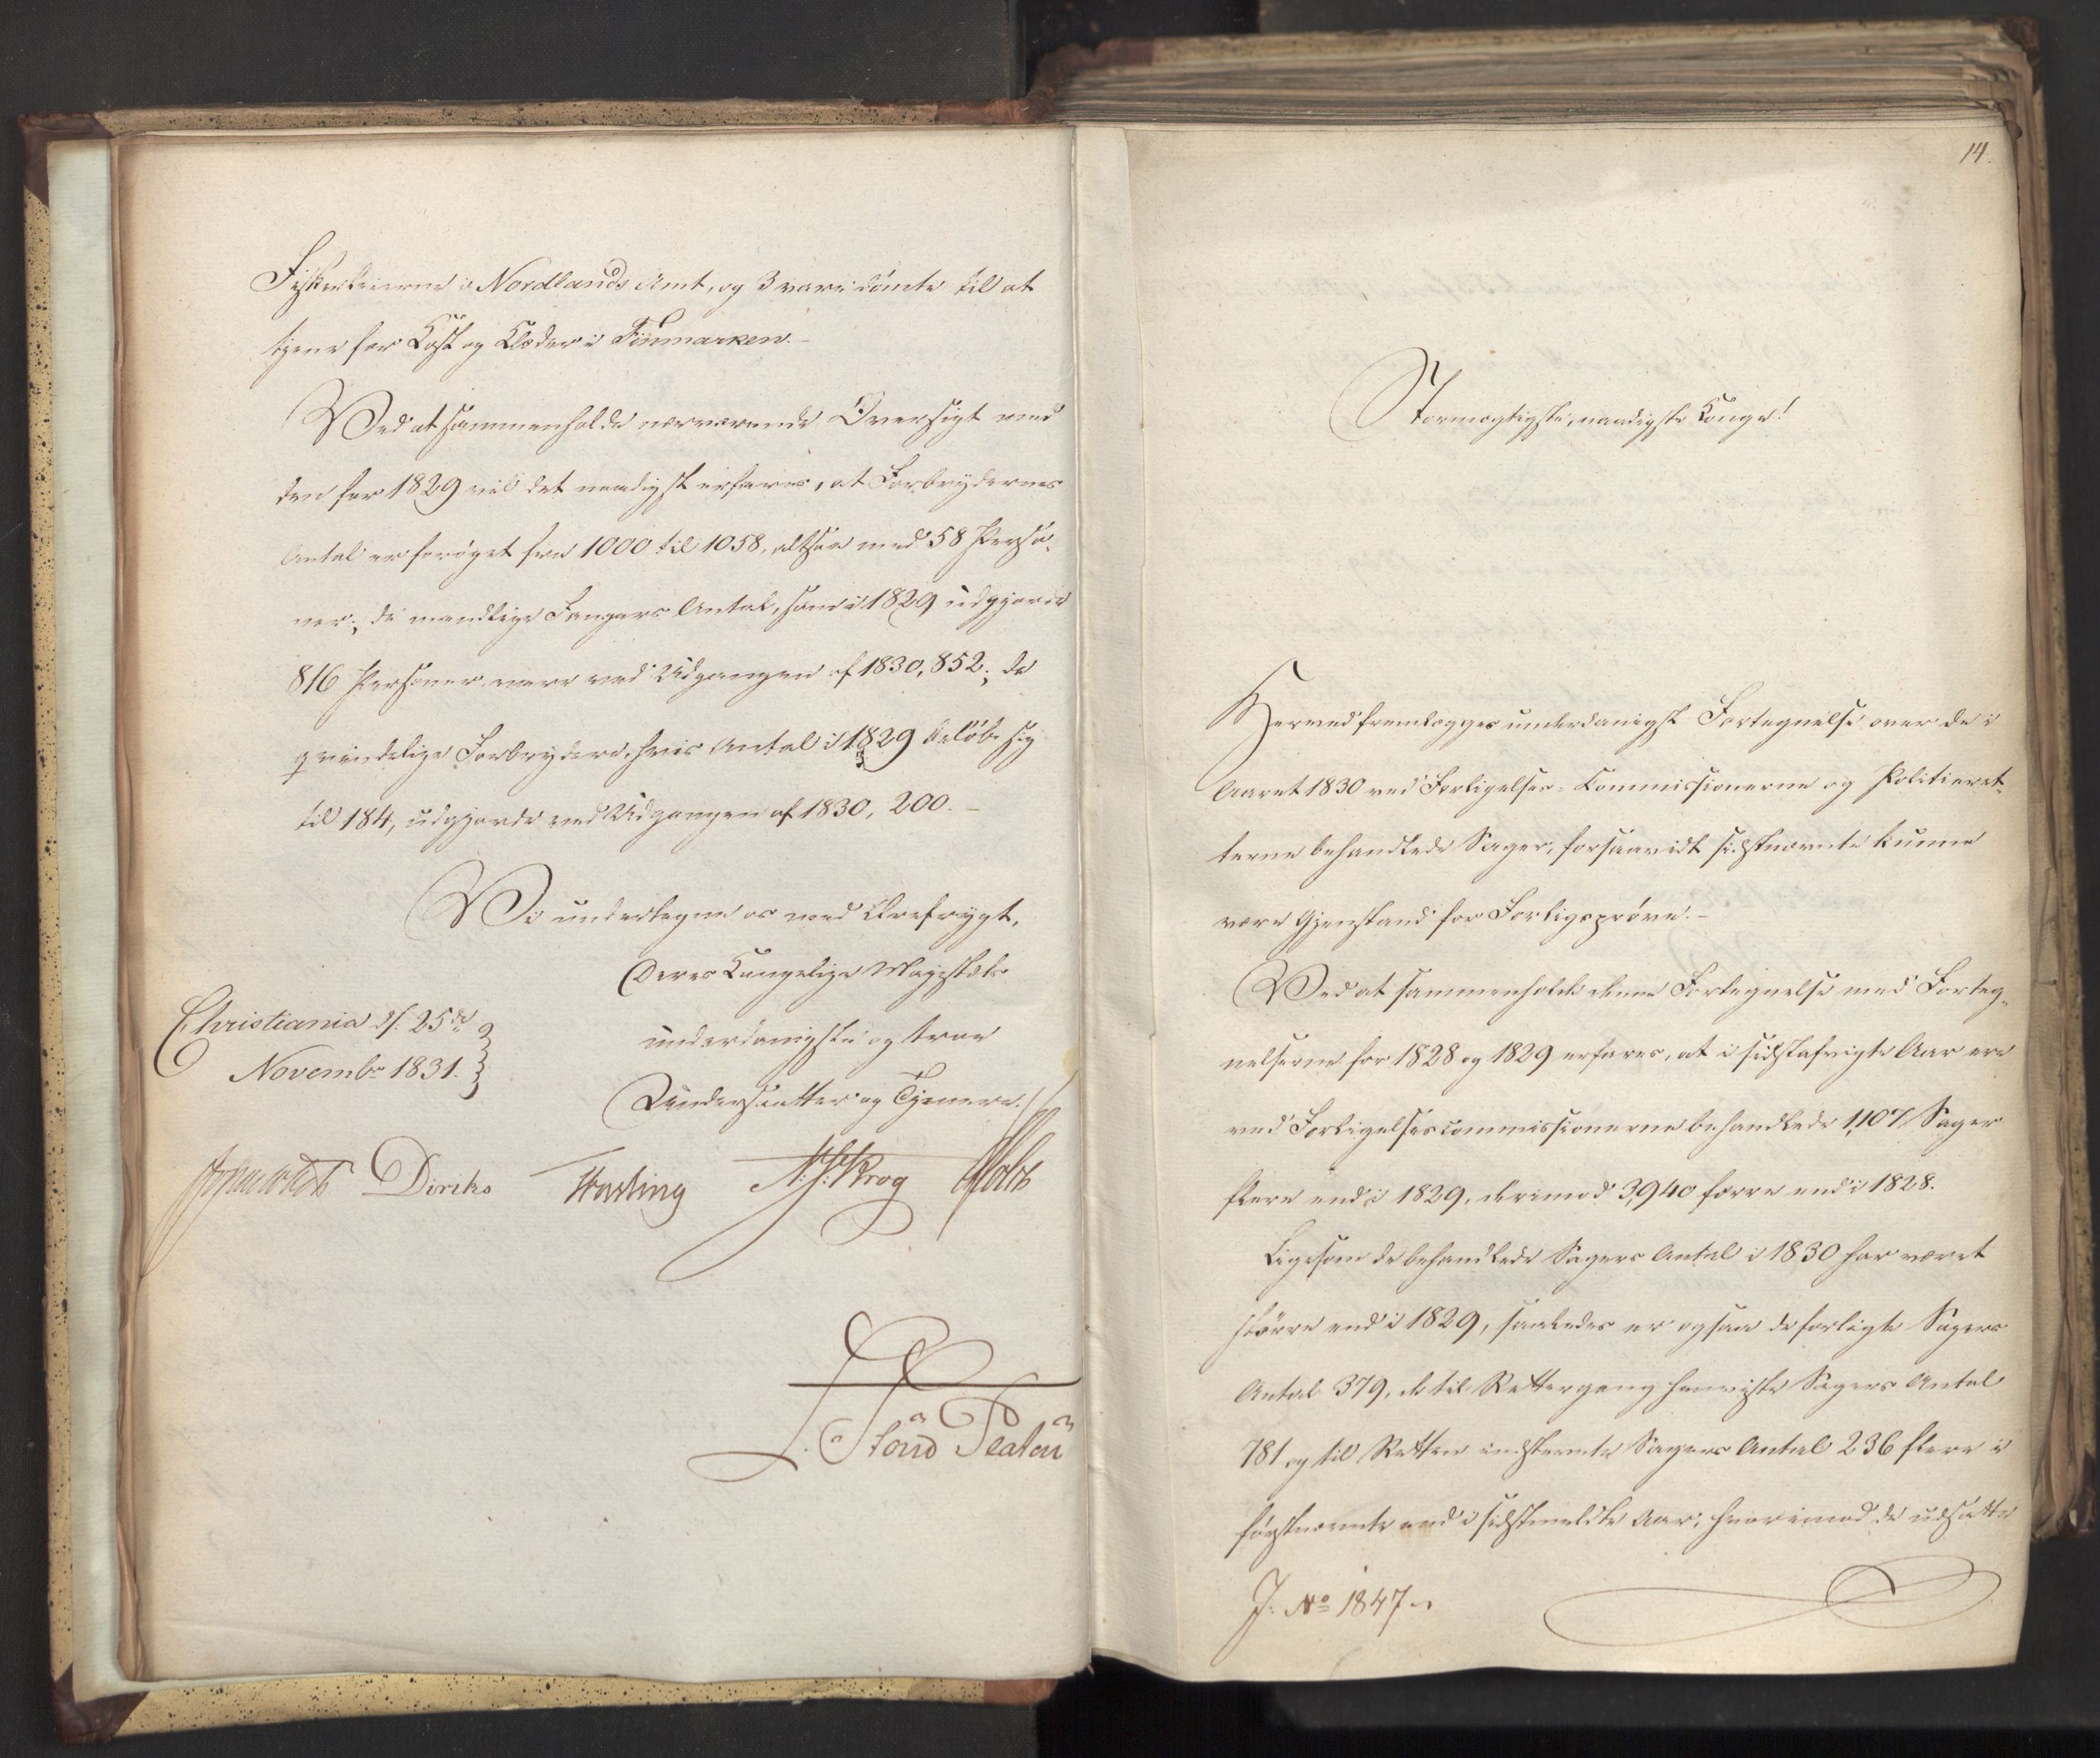 Fiskerleierne i Nordlands Amt, og 3 vare dömte til at
tjene for Kost og Klæder i Finmarken.-
Ved at sammenholde nærværende Oversigt med
den for 1829 vil det naadigst erfares, at Forbrydernes
Antal er foröget fra 1000 til 1058, altsaa med 58 Perso-
ner; de mandlige Fangers Antal, som i 1829 udgjorde
816 Personer vare ved Udgangen af 1830, 852; de
qvindelige Forbrydere, hvis Antal i 1829 belöb sig
til 184, udgjorde ved Udgangen af 1830, 200.-
Vi undertegne os med Ærefrygt,
Deres Kongelige Majestæts
underdanigste og troe
Undersaatter og Tjenere.
Christiania d. 25de
Novembr 1831.
Diriks
N. J. Krog
Holst
14.
Stormægtigste, naadigste Konge!
Herved fremlægges underdanigst Fortegnelse over de i
Aaret 1830 ved Forligelses-Commissionerne og Politieret-
terne behandlede Sager, forsaavidt sidstnævnte kunne
være Gjenstand for Forligsprøve.-
Ved at sammenholde denne Fortegnelse med Forteg-
nelserne for 1828 og 1829 erfares, at i sidstafvigte Aar ere
ved Forligelsescommissionerne behandlede 1,107 Sager
flere end i 1829, derimod 3,940 færre end i 1828.
Ligesom de behandlede Sagers Antal i 1830 har været
större end i 1829, saaledes er ogsaa de forligte Sagers
Antal 379, de til Rettergang henviste Sagers Antal
781 og til Retten indstevnte Sagers Antal 236 flere i
förstnævnte end i sidstmeldte Aar, hvorimod de udsatte
J: No 1847